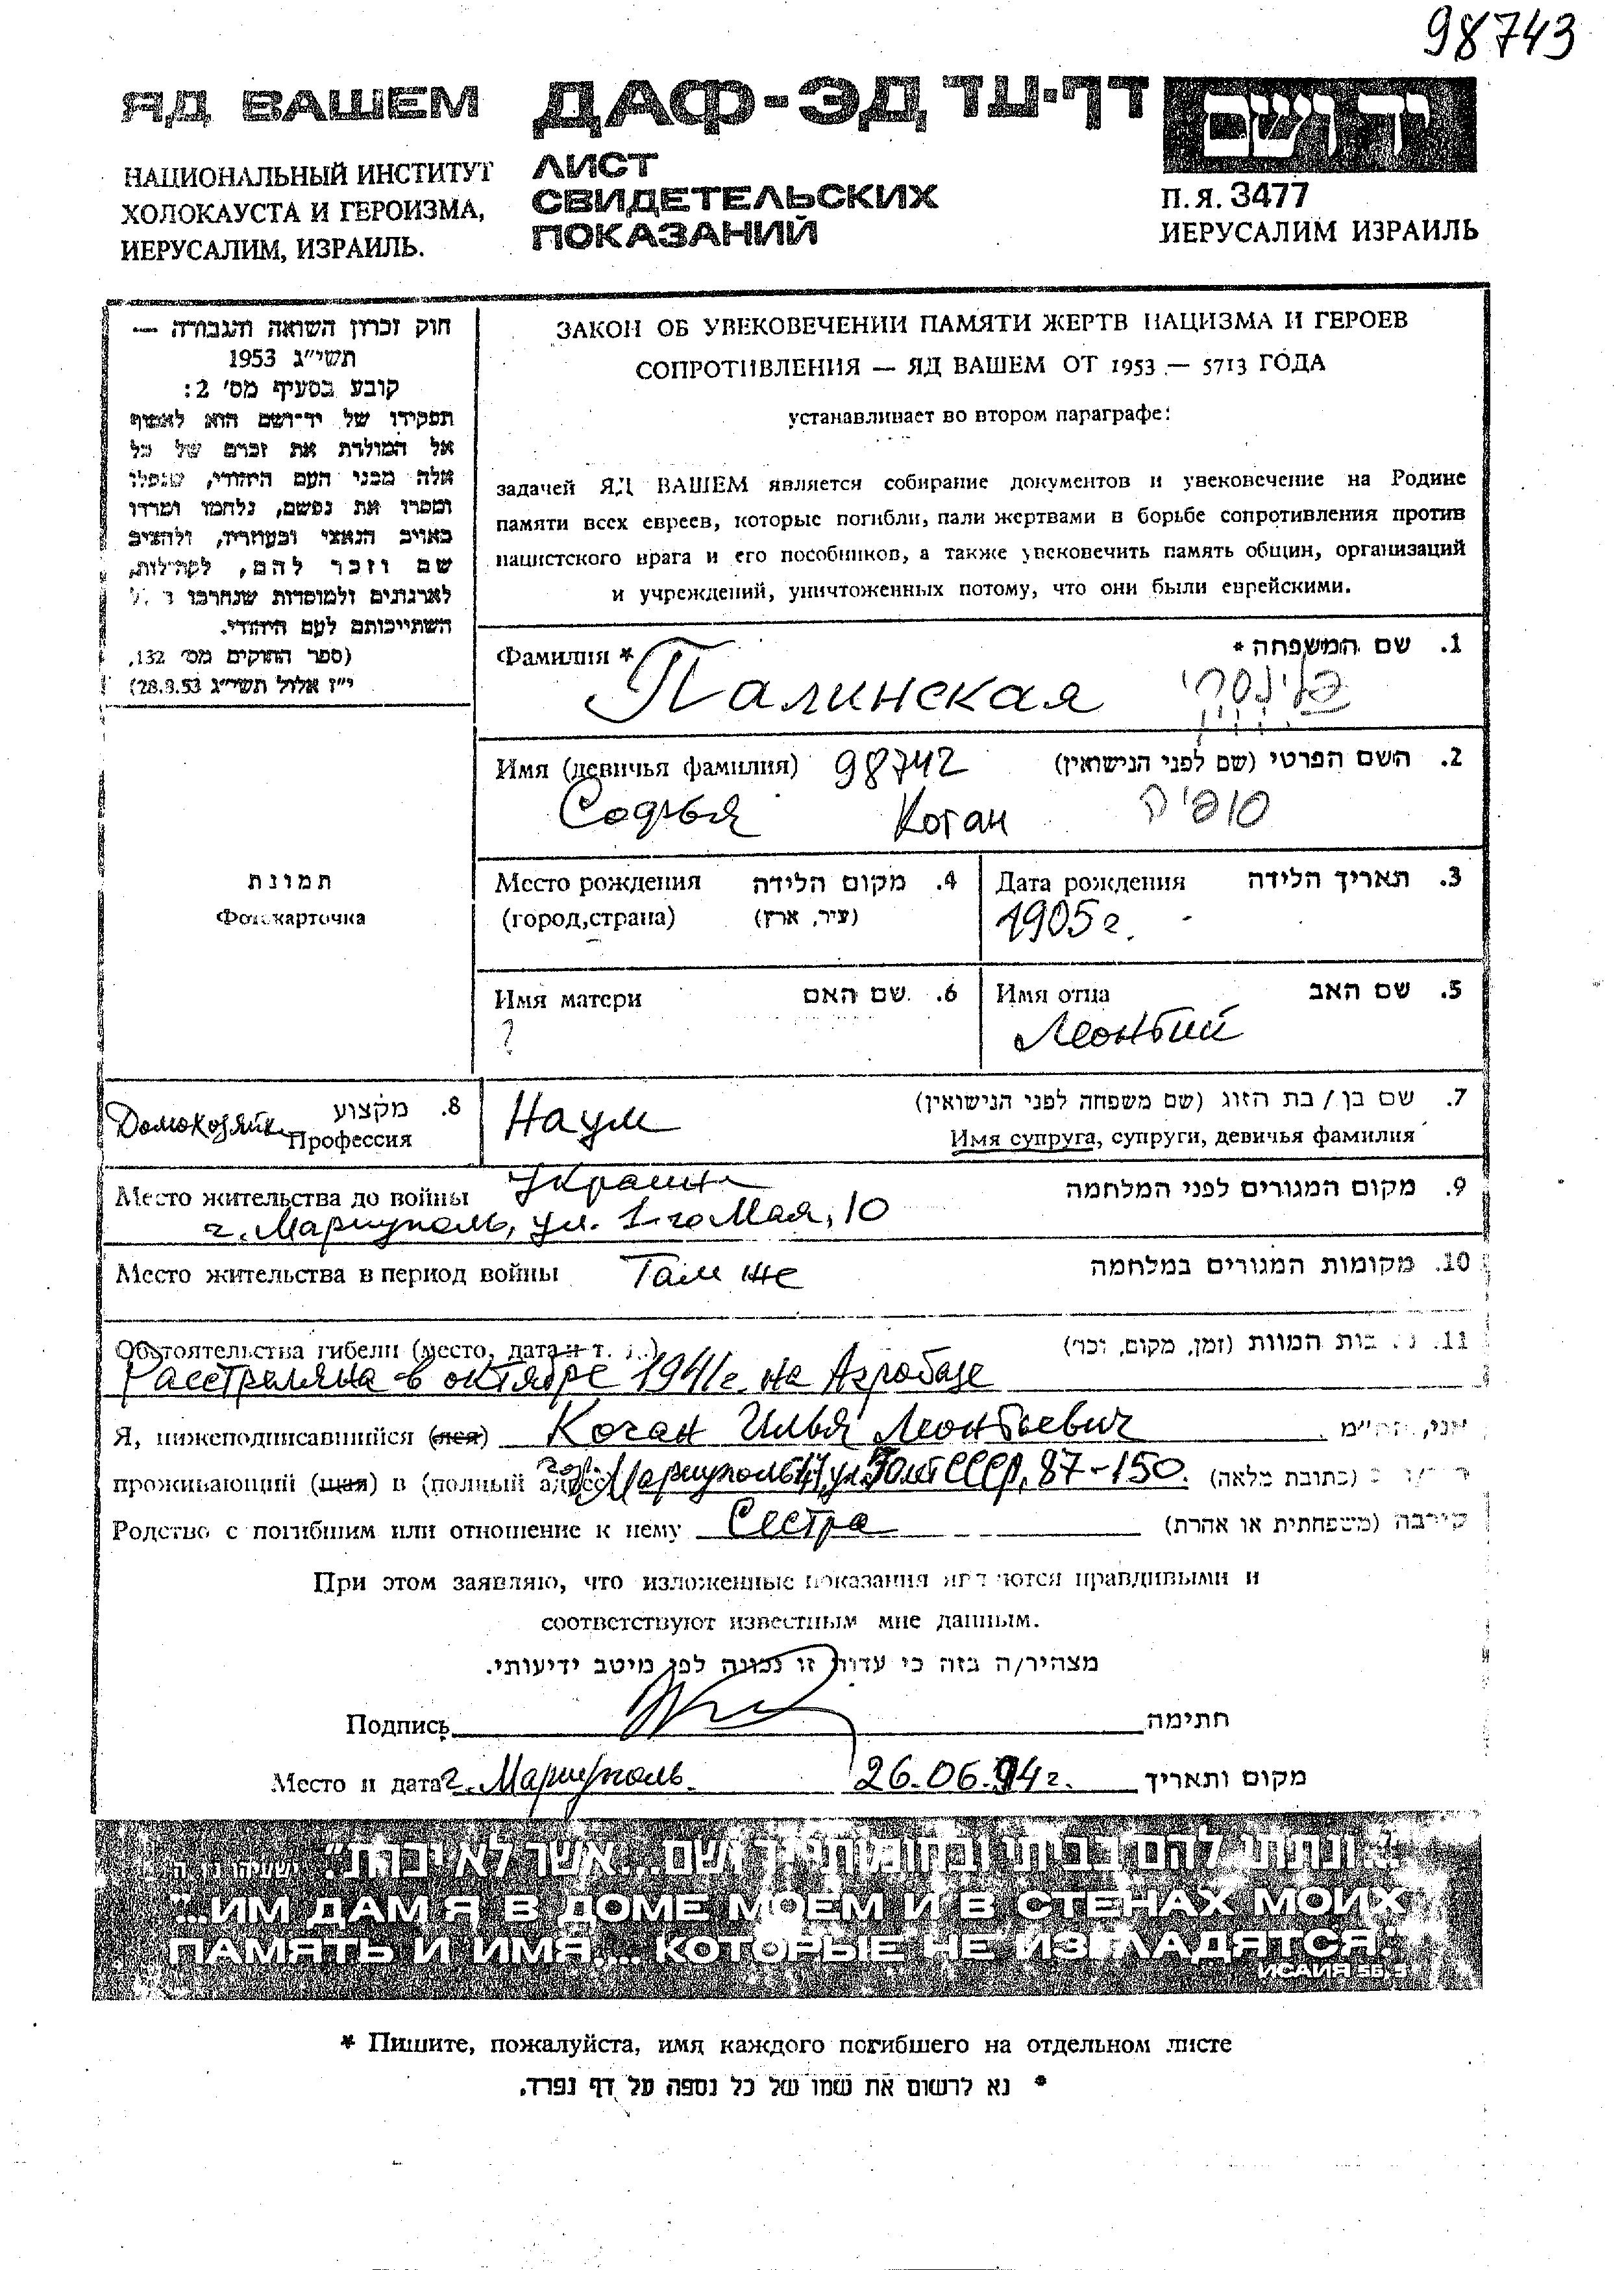 98743
ЯД ВАШЕМ
ДАФ-ЭД דף-עד
יד ושם
НАЦИОНАЛЬНЫЙ ИНСТИТУТ
ХОЛОКАУСТА И ГЕРОИЗМА,
ИЕРУСАЛИМ, ИЗРАИЛЬ.
ЛИСТ
СВИДЕТЕЛЬСКИХ
ПОКАЗАНИЙ
П.Я. 3477
ИЕРУСАЛИМ ИЗРАИЛЬ
חוק זכרון השואה והגבורה —
תשי״ג 1953
קובע בסעיף מס׳ 2:
תפקידו של יד־ושם הוא לאסוף
אל המולדת את זכרם של כל
אלה מבני העם היהודי, שנפלו
ומסרו את נפשם, נלחמו ומרדו
באויב הנאצי ובעוזריו, ולהציב
שם וזכר להם, לקהילות,
לארגונים ולמוסדות שנחרבו
השתייכותם לעם היהודי.
(ספר החוקים מס׳ 132,
י״ז אלול תשי״ג 28.8.53)
ЗАКОН ОБ УВЕКОВЕЧЕНИИ ПАМЯТИ ЖЕРТВ НАЦИЗМА И ГЕРОЕВ
СОПРОТИВЛЕНИЯ — ЯД ВАШЕМ ОТ 1953 — 5713 ГОДА
устанавливает во втором параграфе:
задачей ЯД ВАШЕМ является собирание документов и увековечение на Родине
памяти всех евреев, которые погибли, пали жертвами в борьбе сопротивления против
нацистского врага и его пособников, а также увековечить память общин, организаций
и учреждений, уничтоженных потому, что они были еврейскими.
Фамилия * 1. שם המשפחה *
Палинская פלינסקי
Имя (девичья фамилия) 98742 2. השם הפרטי (שם לפני הנישואין)
Софья Коган סופיה
תמונת
Фотокарточка
Место рождения 4. מקום הלידה
(город,страна) (עיר, ארץ)
Дата рождения 3. תאריך הלידה
1905г.
Имя матери 6. שם האם
?
Имя отца 5. שם האב
Леонтий
Домохозяйка 8. מקצוע
Профессия
Наум 7. שם בן / בת הזוג (שם משפחה לפני הנישואין)
Имя супруга, супруги, девичья фамилия
Место жительства до войны Украина 9. מקום המגורים לפני המלחמה
г. Мариуполь, ул. 1-го Мая, 10
Место жительства в период войны Там же 10. מקומות המגורים במלחמה
Обстоятельства гибели (место, дата и т. д.) 11. המוות (זמן, מקום, וכו׳)
Расстреляна в октябре 1941г. на Агробазе
Я, нижеподписавшийся (аяся) Коган Илья Леонтьевич אני, הח״מ
проживающий (щая) в (полный адрес) гор. Мариуполь ул. 50 лет СССР, 87-150. (כתובת מלאה)
Родство с погибшим или отношение к нему Сестра קירבה (משפחתית או אחרת)
При этом заявляю, что изложенные показания являются правдивыми и
соответствуют известным мне данным.
מצהיר/ה בזה כי עדות זו נכונה לפי מיטב ידיעותי.
Подпись חתימה
Место и дата г. Мариуполь. 26.06.94г. מקום ותאריך
"...ונתתי להם בביתי ובחומותי יד ושם...אשר לא יכרת". ישעיהו נו ה
"...ИМ ДАМ Я В ДОМЕ МОЕМ И В СТЕНАХ МОИХ
ПАМЯТЬ И ИМЯ,... КОТОРЫЕ НЕ ИЗГЛАДЯТСЯ."
ИСАИЯ 56, 5
* Пишите, пожалуйста, имя каждого погибшего на отдельном листе
* נא לרשום את שמו של כל נספה על דף נפרד.